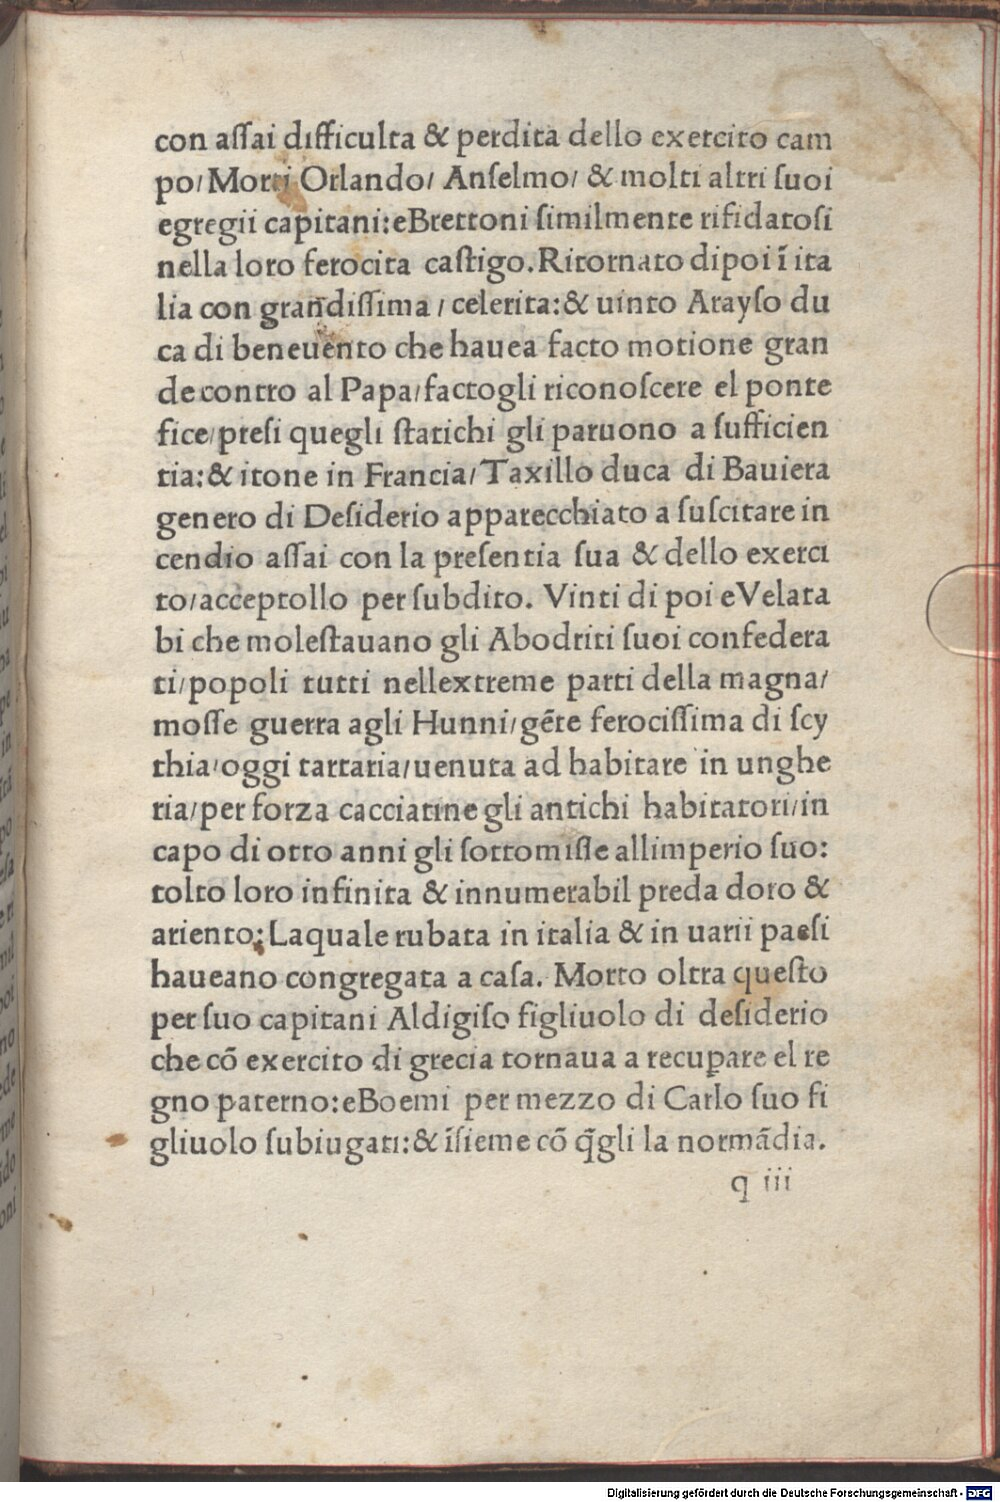 con aſſai difficulta & perdita dello exercito cam
po/Morti Orlando/ Anſelmo/ & molti altri ſuoi
egregii capitani:eBrettoni ſimilmente rifidatoſi
nella loro ferocita caſtigo.Ritornato dipoi ī ita
lia con grandiſſima / celerita:& uinto Arayſo du
ca di beneuento che hauea facto motione gran
de contro al Papa/factogli riconoſcere el ponte
fice/preſi quegli ſtatichi gli paruono a ſufficien
tia:& itone in Francia/Taxillo duca di Bauiera
genero di Deſiderio apparecchiato a ſuſcitare in
cendio aſſai con la preſentia ſua & dello exerci
to/acceptollo per ſubdito. Vinti di poi eVelata
bi che moleſtauano gli Abodriti ſuoi confedera
ti/popoli tutti nellextreme parti della magna/
moſſe guerra agli Hunni/gēte ferociſſima di ſcy
thia/oggi tartaria/uenuta ad habitare in unghe
ria/per forza cacciatine gli antichi habitatori/in
capo di otto anni gli ſottomiſſe allimperio ſuo:
tolto loro infinita & innumerabil preda doro &
ariento:Laquale rubata in italia & in uarii paeſi
haueano congregata a caſa. Morto oltra queſto
per ſuo capitani Aldigiſo figliuolo di deſiderio
che cō exercito di grecia tornaua a recupare el re
gno paterno:eBoemi per mezzo di Carlo ſuo fi
gliuolo ſubiugati:& īſieme cō q̄gli la normādia.
q iii
Digitalisierung gefördert durch die Deutsche Forschungsgemeinschaft - DFG